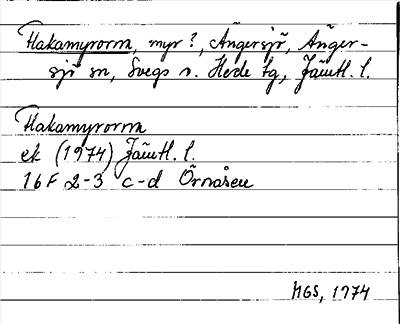 Hakamyrorna, myr?, Ängersjö, Änger-
sjö sn, Svegs o. Hede tg, Jämtl. l.
Hakamyrorna
ek (1974) Jämtl. l.
16F 2-3 c-d Örnåsen
MGS, 1974